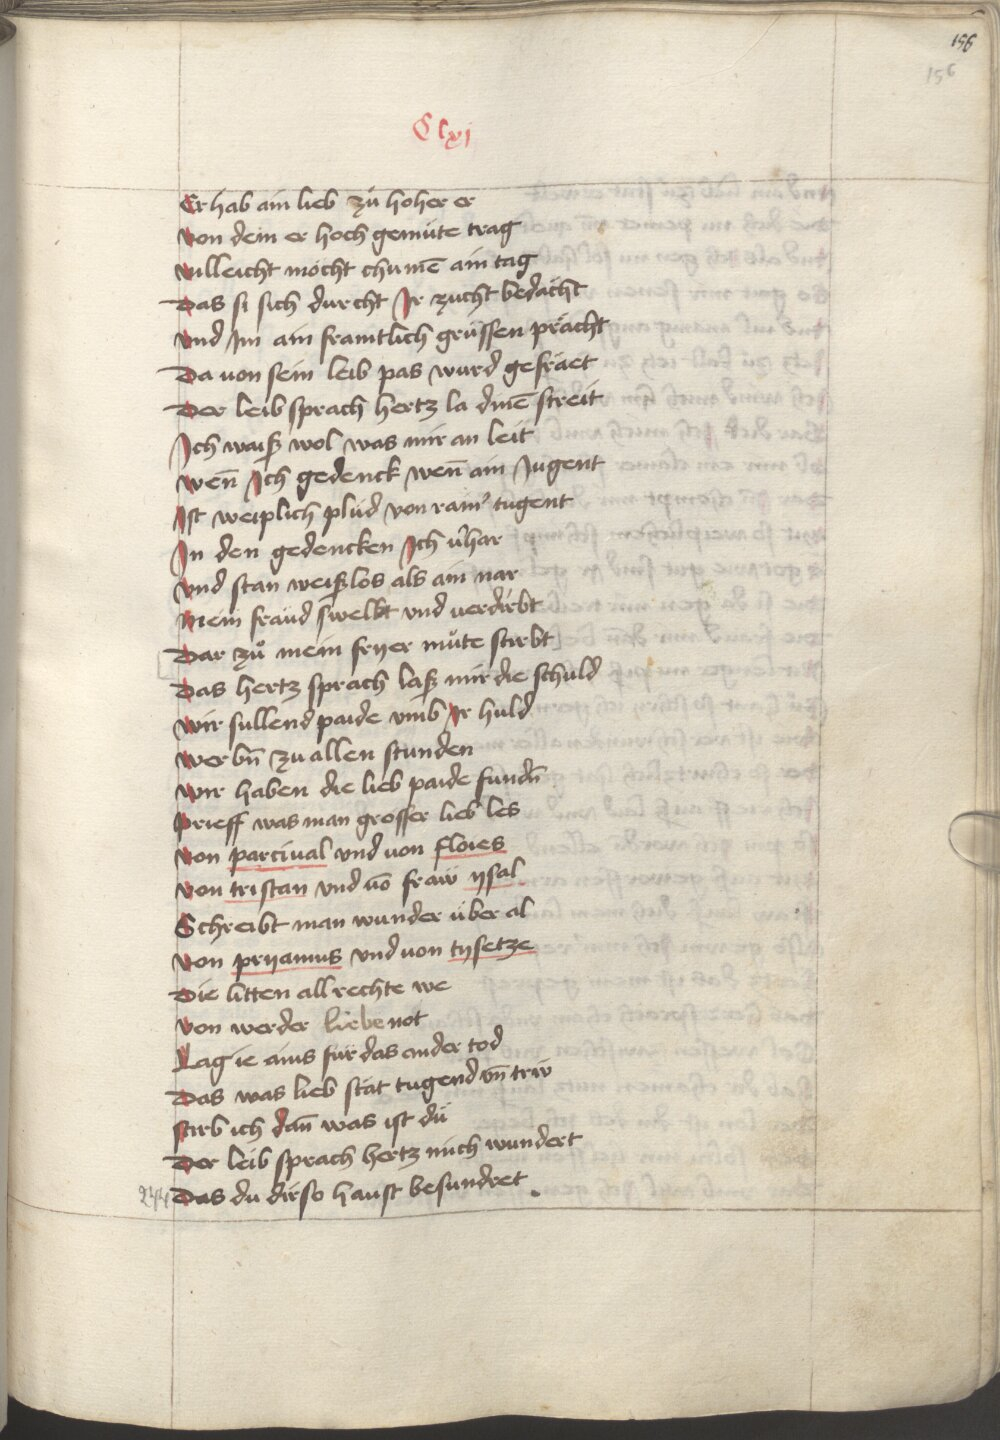 156
156
Clxj
Er hab ain lieb zů hoher er
von dem er hoch gemüte trag
villeicht möcht chumē ain tag
Das si sich durcht Ir zucht bedächt
vnd Im ain framtlich grüssen prächt
Da uon sein leib pas wurd gefräet
Der leib sprach hertz la dinē streit
Ich waiß wol was mir an leit
wen̄ Ich gedenck wen̄ ain Jugent
Ist weiplich plüd von rain' tugent
In den gedencken Ich v'har
vnd stan weißlos als ain nar
Mein fräud swelkt vnd uerdirbt
Dar zů mein fryer müte stirbt
Das hertz sprach laß mir die schuld
wir sullend paide vmb Ir huld
werbn̄ zu allen stunden
wir haben die lieb paide fundn̄
Prieff was man grosser lieb les
von parciual vnd uon floies
von tristan vnd uō fraw ysal
Schreibt man wunder über al
von pryamus vnd uon tysetze
Die litten all rechte we
von werder liebe not
Lag ie ains für das ander tod
Das was lieb stät tugend vn̄ triw
stirb ich dan̄ was ist dü
Der leib sprach hertz mich wundert
244 Das du dir so haust besundret .